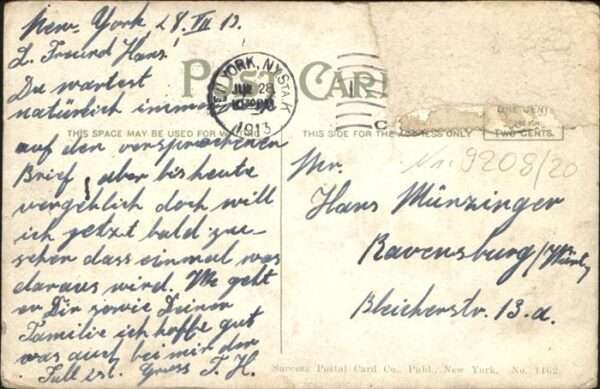 New-York, 28. VII 13.
L. Freund Hans!
Du wartest
natürlich immer
auf den versprochenen
Brief, aber bis heute
vergeblich doch will
ich jetzt bald zu-
sehen dass einmal was
daraus wird. Wie geht
es Dir sowie Deiner
Familie ich hoffe gut
was auch bei mir der
Fall ist. Gruss T. H.
POST CARD
NEW YORK, N.Y. STA. K
JUL 28
1913
ONE CENT
TWO CENTS.
THIS SPACE MAY BE USED FOR WRITING
THIS SIDE FOR THE ADDRESS ONLY
Nr. 9208/20
Mr.
Hans Münzinger
Ravensburg/Württ.
Bleicherstr. 13.a.
Success Postal Card Co., Publ., New York. No. 1162.